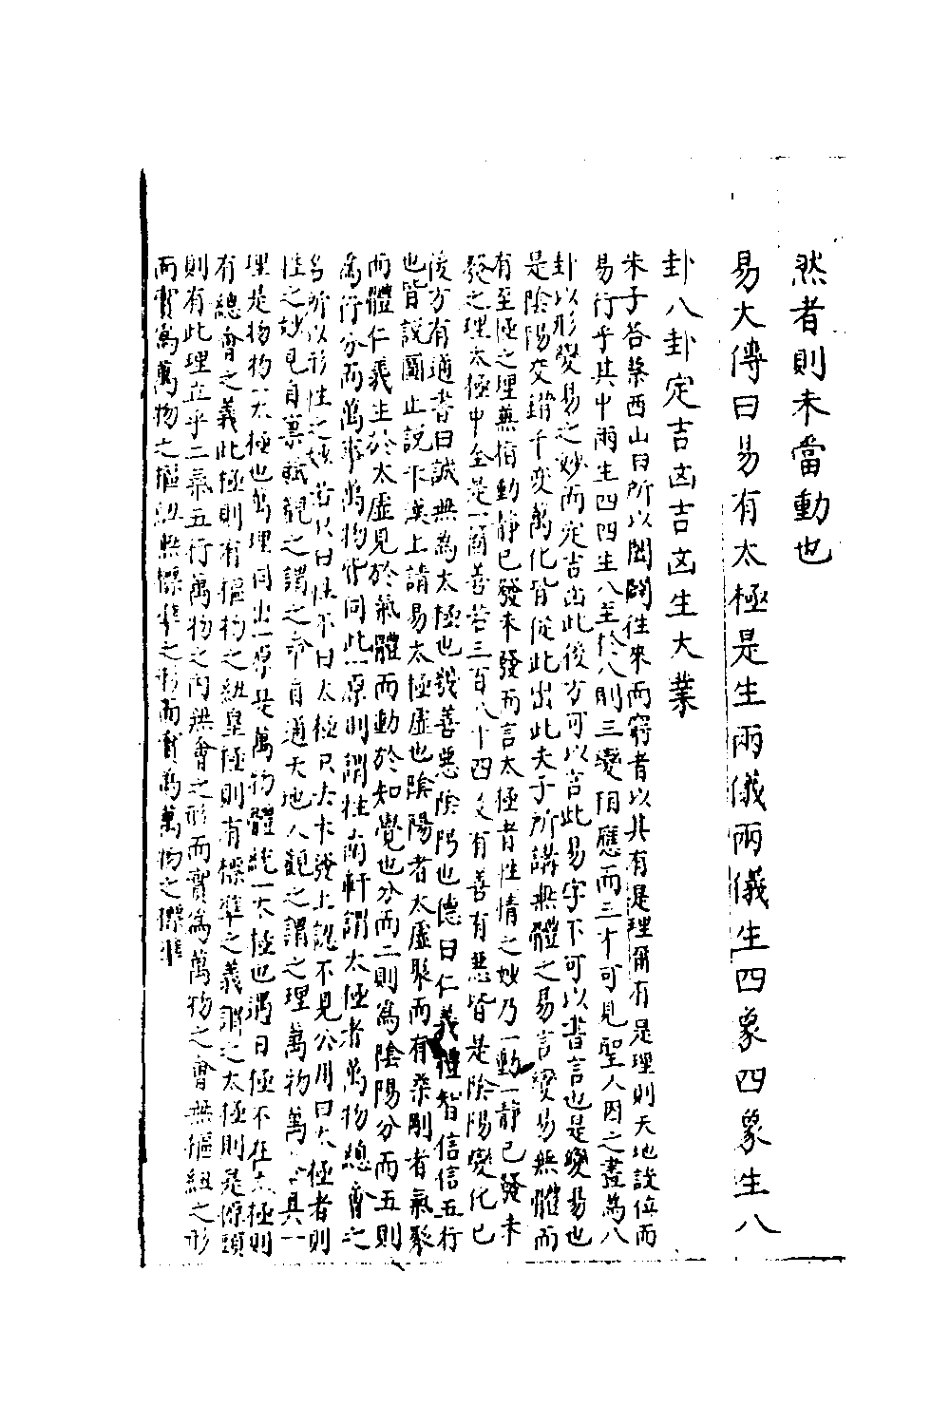 然者則未當動也
易大傳曰易有太極是生兩儀兩儀生四象四象生八
卦八卦定吉凶吉凶生大業
朱子答蔡西山曰所以闔闢往來而窮者以其有是理爾有是理則天地設位而
易行乎其中兩生四四生八至於八則三變相應而三才可見聖人因之畫為八
卦以形變易之妙而定吉凶此後方可以言此易字不可以書言也是變易也
是陰陽交錯千變萬化皆從此出此夫子所講無體之易言變易無體而
有至極之理無有動靜已發未發而言太極者性情之妙乃一動一靜已發未
發之理太極中全是一箇善若三百八十四爻有善有惡皆是陰陽變化已
後方有通書曰誠無為太極也幾善惡陰陽也德曰仁義禮智信信五行
也皆說圖止說下漢上請易太極虛也陰陽者太虛聚而有柔剛者氣聚
而體仁義生於太虛見於氣體而動於知覺也分而二則為陰陽分而五則
萬行分而萬事萬物皆同此一原則謂性南軒謂太極者萬物總會之
名所以形性之 若只曰性不曰太極只去未發上認不見公用曰太極者則
性之妙見自稟賦觀之謂之命自通天地人觀之謂之理萬物萬 具一
理是物物一太極也萬理同出一原是萬物體統一太極也遇曰極不在太極則
有總會之義此極則有樞柄之紐皇極則有標準之義謂之太極則是源頭
則有此理立乎二氣五行萬物之內無會之形而實為萬物之會無樞紐之形
而實為萬物之樞紐無標準之形而實為萬物之標準